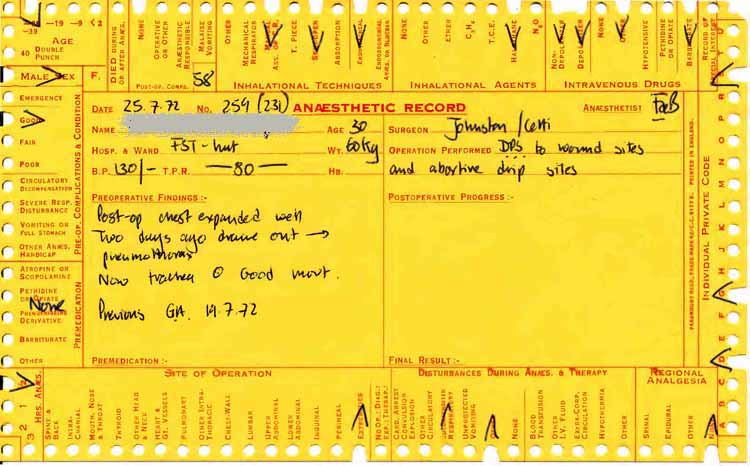 -19 -9 <2
-39
40
AGE
DOUBLE PUNCH
DIED DURING OR AFTER ANÆS.
NONE
OPERATIVE OR OTHER
ANÆSTHETIC RESPONSIBLE
MALAISE VOMITING
OTHER
MECHANICAL RESPIRATOR
T. PIECE
ABSORPTION
ENDOTRACHEAL
NONE
OTHER
ETHER
C₂H₄
T.C.E.
N₂O
NON-DEPOLARISER
DEPOLARISER
HYPOTENSIVE
PETHIDINE OR OPIATE
RECORD OF SPECIAL INTEREST
MALE SEX F.
POST-OP. COMPS. 58
INHALATIONAL TECHNIQUES
INHALATIONAL AGENTS
INTRAVENOUS DRUGS
DATE 25.7.72 NO. 259 (231) ANÆSTHETIC RECORD ANÆSTHETIST
NAME AGE 30 SURGEON Johnston /
HOSP. & WARD FST - hut WT. 60kg OPERATION PERFORMED DPS to wound sites
B.P. 130/- T.P.R. —80— HB. and abortive drip sites
PREOPERATIVE FINDINGS :- POSTOPERATIVE PROGRESS :-
Post-op chest expanded well
Two days ago drain out →
pneumothorax
Now trachea Good movt.
Previous GA. 19.7.72
PREMEDICATION :- FINAL RESULT :-
EMERGENCY
GOOD
FAIR
POOR
CIRCULATORY DECOMPENSATION
SEVERE RESP. DISTURBANCE
VOMITING OR FULL STOMACH
OTHER ANÆS. HANDICAP
PRE-OP. COMPLICATIONS & CONDITION
ATROPINE OR SCOPOLAMINE
PETHIDINE OR OPIATE
None
PHENOTHIAZINE DERIVATIVE
BARBITURATE
OTHER
PREMEDICATION
INDIVIDUAL PRIVATE CODE
PRINTED IN ENGLAND.
A B C D E F G H J K L M N O P R
SITE OF OPERATION
DISTURBANCES DURING ANÆS. & THERAPY
REGIONAL ANALGESIA
3 2 1
HRS. ANÆS.
SPINE & BACK
INTRA-CRANIAL
MOUTH, NOSE & THROAT
THYROID
OTHER HEAD & NECK
HEART & GT. VESSELS
PULMONARY
OTHER INTRA-THORACIC
CHEST-WALL
LUMBAR
UPPER ABDOMINAL
LOWER ABDOMINAL
INGUINAL
PERINEAL
EXTREMITIES
NO OP.; DIAG.; EXP.; THERAP.
CARD. ARREST CONVULSION EXPLOSION
OTHER CIRCULATORY
RESPIRATORY
UNEXPECTED VOMITING
NONE
BLOOD TRANSFUSION
OTHER I.V. FLUID
EXTRA-CORP. CIRCULATION
HYPOTHERMIA
OTHER
SPINAL
EPIDURAL
OTHER